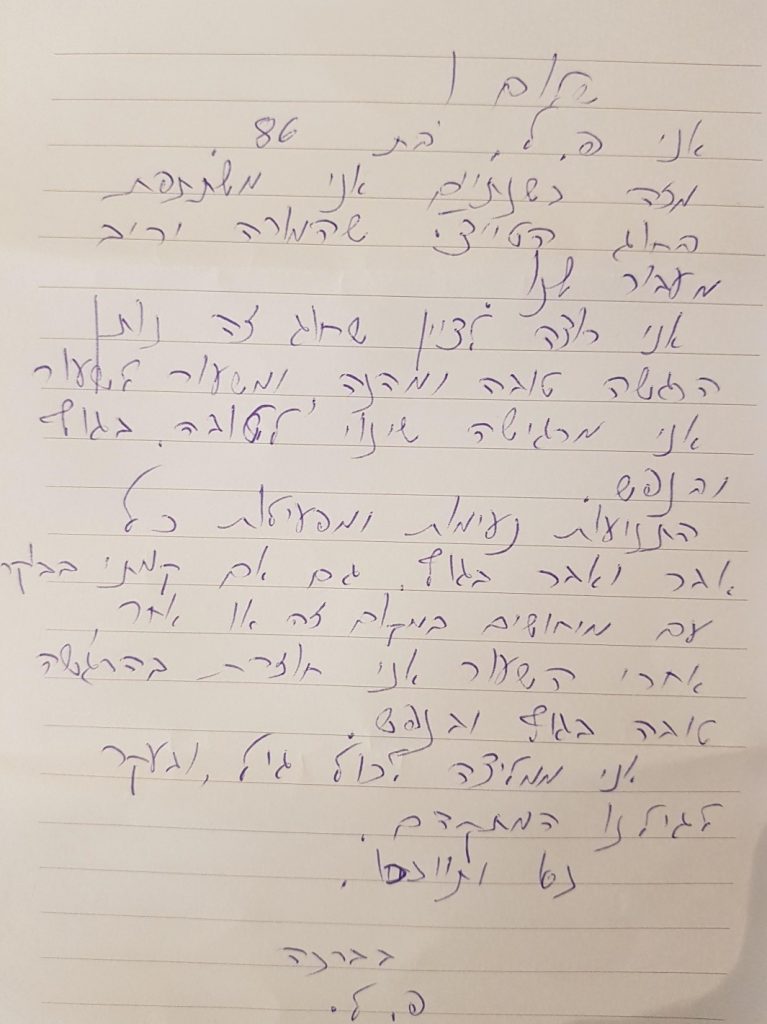 שלום !
אני פ. ל. בת 86.
מזה כשנתיים אני משתתפת
בחוג הטייצ'י שהמורה יריב
מעביר לנו
אני רוצה לציין שחוג זה נותן
הרגשה טובה ומהנה ומשעור לשעור
אני מרגישה שינוי לטובה בגוף
ובנפש.
התנועות נעימות ומפעילות כל
אבר ואבר בגוף. גם אם קמתי בבקר
עם מיחושים במקום זה או אחר,
אחרי השעור אני חוזרת בהרגשה
טובה בגוף ובנפש.
אני ממליצה לכול גיל, ובעקר
לגילנו המתקדם.
נסו ותיווכחו.
בברכה
פ. ל.